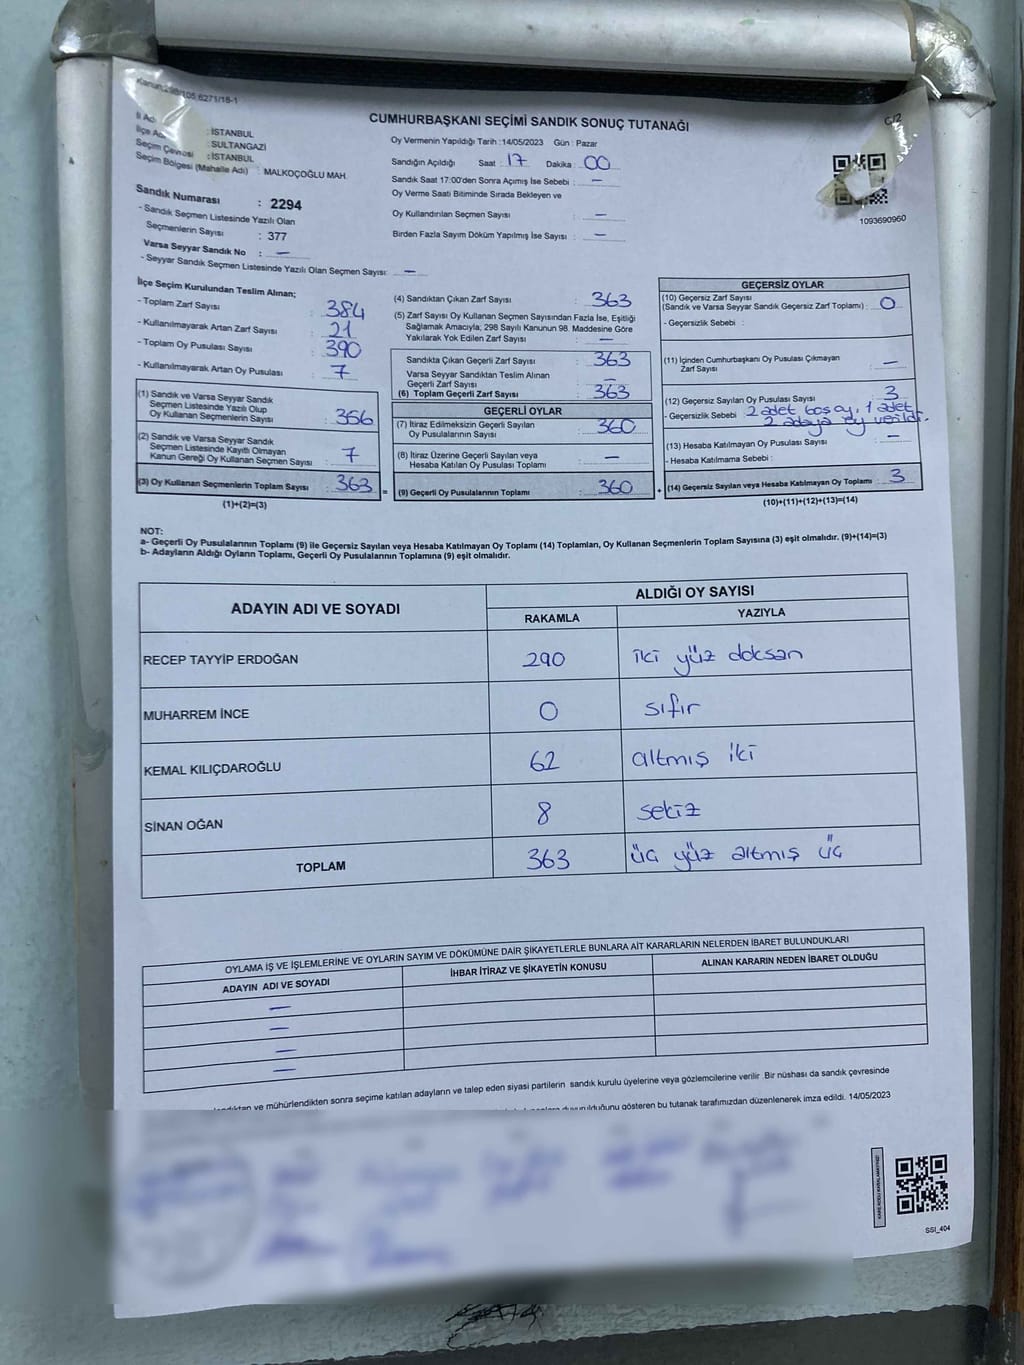 Kanun 298/105,6271/18-1
CUMHURBAŞKANI SEÇİMİ SANDIK SONUÇ TUTANAĞI
C/2
İl Adı : İSTANBUL
İlçe Adı : SULTANGAZİ
Seçim Çevresi : İSTANBUL
Seçim Bölgesi (Mahalle Adı) : MALKOÇOĞLU MAH.
Oy Vermenin Yapıldığı Tarih :14/05/2023 Gün : Pazar
Sandığın Açıldığı Saat : 17 Dakika : 00
Sandık Saat 17:00'den Sonra Açımış İse Sebebi : —
Oy Verme Saati Bitiminde Sırada Bekleyen ve
Oy Kullandırılan Seçmen Sayısı : —
Birden Fazla Sayım Döküm Yapılmış İse Sayısı : —
1093690960
Sandık Numarası : 2294
- Sandık Seçmen Listesinde Yazılı Olan
Seçmenlerin Sayısı : 377
Varsa Seyyar Sandık No : —
- Seyyar Sandık Seçmen Listesinde Yazılı Olan Seçmen Sayısı: —
İlçe Seçim Kurulundan Teslim Alınan;
- Toplam Zarf Sayısı : 384
- Kullanılmayarak Artan Zarf Sayısı : 21
- Toplam Oy Pusulası Sayısı : 390
- Kullanılmayarak Artan Oy Pusulası : 7
(1) Sandık ve Varsa Seyyar Sandık
Seçmen Listesinde Yazılı Olup
Oy Kullanan Seçmenlerin Sayısı : 356
(2) Sandık ve Varsa Seyyar Sandık
Seçmen Listesinde Kayıtlı Olmayan
Kanun Gereği Oy Kullanan Seçmen Sayısı : 7
(3) Oy Kullanan Seçmenlerin Toplam Sayısı : 363 =
(1)+(2)=(3)
(4) Sandıktan Çıkan Zarf Sayısı : 363
(5) Zarf Sayısı Oy Kullanan Seçmen Sayısından Fazla İse, Eşitliği
Sağlamak Amacıyla; 298 Sayılı Kanunun 98. Maddesine Göre
Yakılarak Yok Edilen Zarf Sayısı : —
Sandıkta Çıkan Geçerli Zarf Sayısı : 363
Varsa Seyyar Sandıktan Teslim Alınan
Geçerli Zarf Sayısı : —
(6) Toplam Geçerli Zarf Sayısı : 363
GEÇERLİ OYLAR
(7) İtiraz Edilmeksizin Geçerli Sayılan
Oy Pusulalarının Sayısı : 360
(8) İtiraz Üzerine Geçerli Sayılan veya
Hesaba Katılan Oy Pusulası Toplamı : —
(9) Geçerli Oy Pusulalarının Toplamı : 360 +
GEÇERSİZ OYLAR
(10) Geçersiz Zarf Sayısı
(Sandık ve Varsa Seyyar Sandık Geçersiz Zarf Toplamı) : 0
- Geçersizlik Sebebi :
(11) İçinden Cumhurbaşkanı Oy Pusulası Çıkmayan
Zarf Sayısı : —
(12) Geçersiz Sayılan Oy Pusulası Sayısı : 3
- Geçersizlik Sebebi : 2 adet boş oy, 1 adet
2 adaya oy verildi.
(13) Hesaba Katılmayan Oy Pusulası Sayısı : —
- Hesaba Katılmama Sebebi :
(14) Geçersiz Sayılan veya Hesaba Katılmayan Oy Toplamı : 3
(10)+(11)+(12)+(13)=(14)
NOT:
a- Geçerli Oy Pusulalarının Toplamı (9) ile Geçersiz Sayılan veya Hesaba Katılmayan Oy Toplamı (14) Toplamları, Oy Kullanan Seçmenlerin Toplam Sayısına (3) eşit olmalıdır. (9)+(14)=(3)
b- Adayların Aldığı Oyların Toplamı, Geçerli Oy Pusulalarının Toplamına (9) eşit olmalıdır.
ADAYIN ADI VE SOYADI ALDIĞI OY SAYISI
RAKAMLA YAZIYLA
RECEP TAYYİP ERDOĞAN 290 iki yüz doksan
MUHARREM İNCE 0 sıfır
KEMAL KILIÇDAROĞLU 62 altmış iki
SİNAN OĞAN 8 sekiz
TOPLAM 363 üç yüz altmış üç
OYLAMA İŞ VE İŞLEMLERİNE VE OYLARIN SAYIM VE DÖKÜMÜNE DAİR ŞİKAYETLERLE BUNLARA AİT KARARLARIN NELERDEN İBARET BULUNDUKLARI
ADAYIN ADI VE SOYADI İHBAR İTİRAZ VE ŞİKAYETİN KONUSU ALINAN KARARIN NEDEN İBARET OLDUĞU
—
—
—
—
ve mühürlendikten sonra seçime katılan adayların ve talep eden siyasi partilerin sandık kurulu üyelerine veya gözlemcilerine verilir .Bir nüshası da sandık çevresinde
duyurulduğunu gösteren bu tutanak tarafımızdan düzenlenerek imza edildi. 14/05/2023
SSI_404